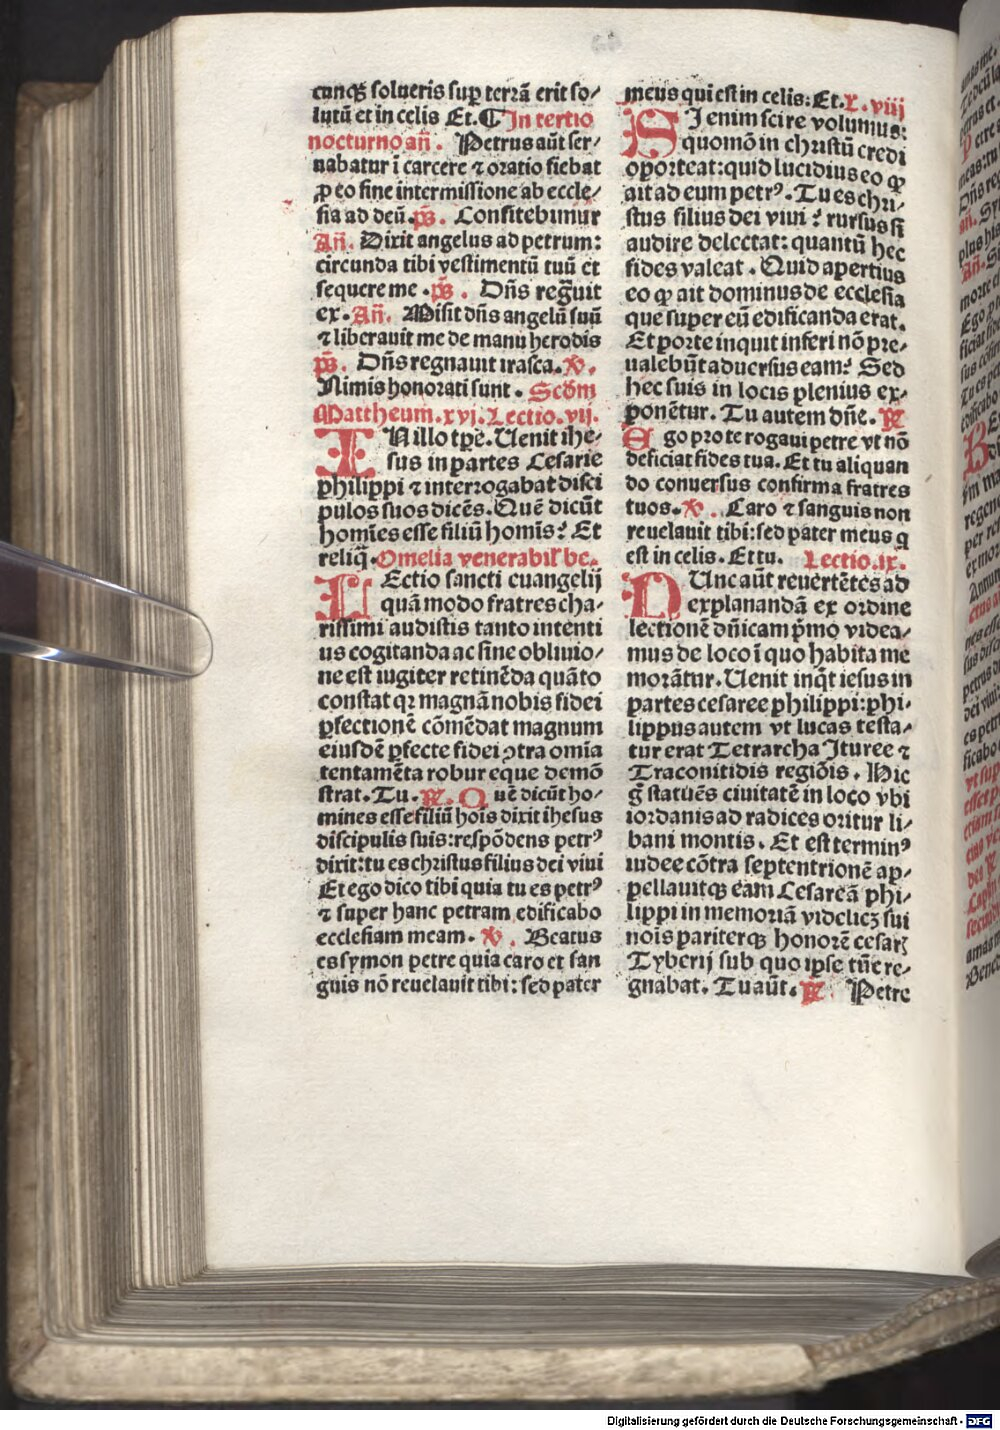 cunqꝫ solueris sup terrã erit so/
lutũ et in celis Et. ¶ In tertio
nocturno añ. Petrus aũt ser⸗
uabatur ĩ carcere ⁊ oratio fiebat
ꝓ eo sine intermissione ab eccle/
sia ad deũ. p̃s. Confitebimur
Añ. Dixit angelus ad petrum:
circunda tibi vestimentũ tuũ et
sequere me. p̃s. Dñs regnuit
ex. Añ. Misit dñs angelũ suũ
⁊ liberauit me de manu herodis
p̃s. Dñs regnauit irasca. ℣.
Nimis honorati sunt. Scd̃m
Mattheum. xvj. Lectio. vij.
IN illo tp̃e. Uenit ihe⸗
sus in partes Cesarie
philippi ⁊ interrogabat disci
pulos suos dicẽs. Quẽ dicũt
homĩes esse filiũ homĩs? Et
reliq̃. Omelia venerabil' be.
LEctio sancti euangelij
quã modo fratres cha⸗
rissimi audistis tanto intenti
us cogitanda ac sine obliuio/
ne est iugiter retinẽda quãto
constat qꝛ magnã nobis fidei
ꝑfectionẽ cõmẽdat magnum
eiusdẽ ꝑfecte fidei ↄtra omĩa
tentamẽta robur eque demõ
strat. Tu. ℟. Quẽ dicũt ho/
mines esse filiũ hoĩs dixit ihesus
discipulis suis: respõdens petrꝰ
dixit: tu es christus filius dei viui
Et ego dico tibi quia tu es petrꝰ
⁊ super hanc petram edificabo
ecclesiam meam. ℣. Beatus
es symon petre quia caro et san
guis nõ reuelauit tibi: sed pater
meus qui est in celis: Et. L. viij
SI enim scire volumus:
quomõ in christũ credi
oporteat: quid lucidius eo ꝙ
ait ad eum petrꝰ. Tu es chri⸗
stus filius dei viui? rursus si
audire delectat: quantũ hec
fides valeat. Quid apertius
eo ꝙ ait dominus de ecclesia
que super eũ edificanda erat.
Et porte inquit inferi nõ pre⸗
ualebũt aduersus eam? Sed
hec suis in locis plenius ex⸗
ponẽtur. Tu autem dñe. ℟
Ego pro te rogaui petre vt nõ
deficiat fides tua. Et tu aliquan
do conuersus confirma fratres
tuos. ℣. Caro ⁊ sanguis non
reuelauit tibi: sed pater meus q
est in celis. Et tu. Lectio. ix.
NUnc aũt reuertẽtes ad
explanandã ex ordine
lectionẽ dñicam p̃mo videa/
mus de loco ĩ quo habita me
morãtur. Uenit inq̃t iesus in
partes cesaree philippi: phi⸗
lippus autem vt lucas testa⸗
tur erat Tetrarcha Ituree ⁊
Traconitidis regiõis. Hic
g̃ statuẽs ciuitatẽ in loco vbi
iordanis ad radices oritur li/
bani montis. Et est terminꝰ
iudee cõtra septentrionẽ ap⸗
pellauitqꝫ eam Cesareã phi⸗
lippi in memoriã videlicꝫ sui
nois pariterqꝫ honorẽ cesarꝭ
Tyberij sub quo ipse tũc re⸗
gnabat. Tu aũt. ℟. Petre
Digitalisierung gefördert durch die Deutsche Forschungsgemeinschaft - DFG